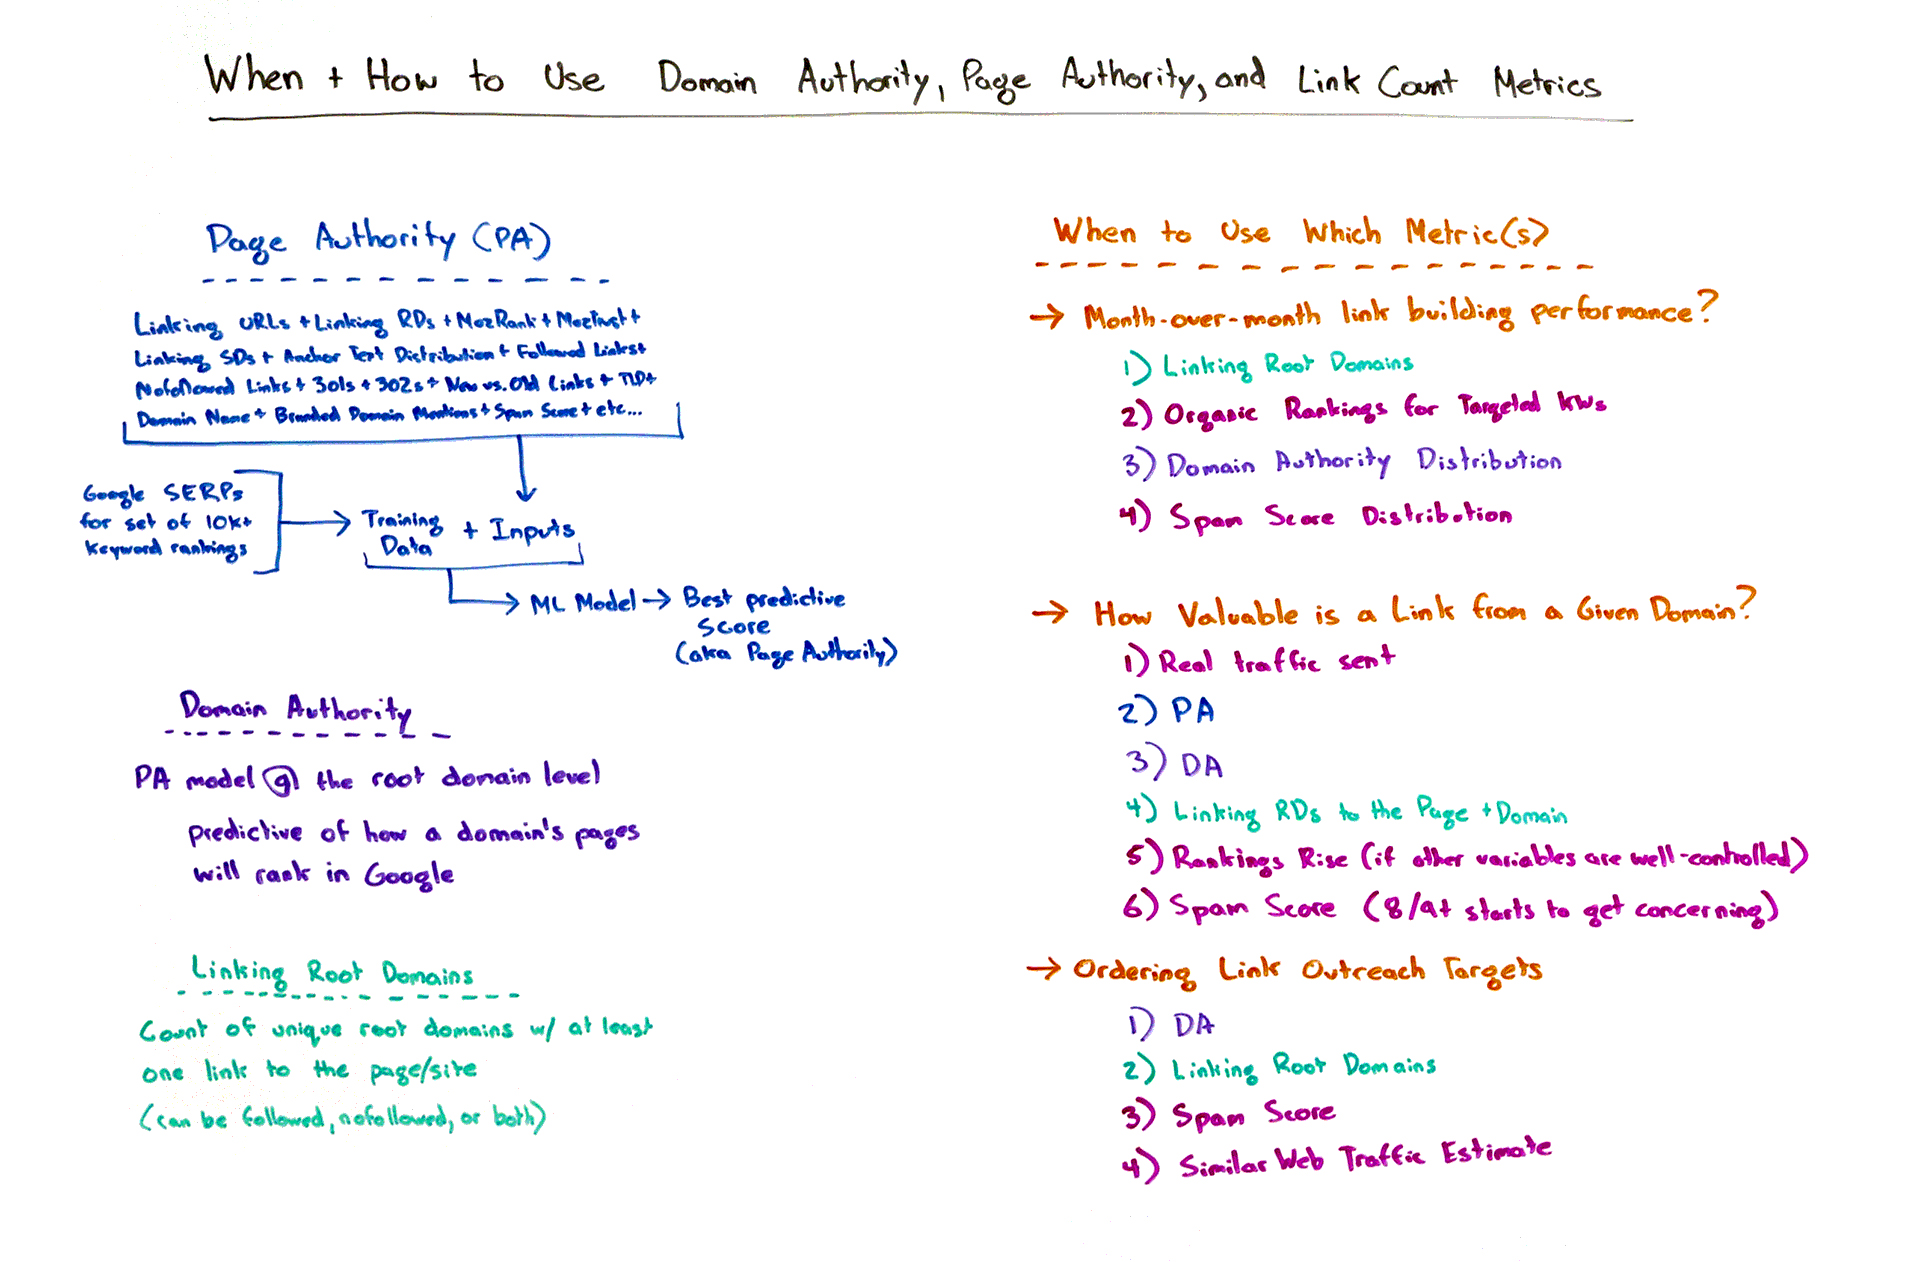 When + How to Use Domain Authority, Page Authority, and Link Count Metrics
Page Authority (PA)
Linking URLs + Linking RDs + MozRank + MozTrust +
Linking SDs + Anchor Text Distribution + Followed Links +
Nofollowed Links + 301s + 302s + New vs. Old Links + TLD +
Domain Name + Branded Domain Mentions + Spam Score + etc...
Google SERPs
for set of 10k+
keyword rankings
Training
Data
+ Inputs
ML Model → Best predictive
score
(aka Page Authority)
Domain Authority
PA model @ the root domain level
predictive of how a domain's pages
will rank in Google
Linking Root Domains
Count of unique root domains w/ at least
one link to the page/site
(can be followed, nofollowed, or both)
When to Use Which Metric(s)
→ Month-over-month link building performance?
1) Linking Root Domains
2) Organic Rankings for Targeted KWs
3) Domain Authority Distribution
4) Spam Score Distribution
→ How Valuable is a Link from a Given Domain?
1) Real traffic sent
2) PA
3) DA
4) Linking RDs to the Page + Domain
5) Rankings Rise (if other variables are well-controlled)
6) Spam Score (8/9+ starts to get concerning)
→ Ordering Link Outreach Targets
1) DA
2) Linking Root Domains
3) Spam Score
4) Similar Web Traffic Estimate